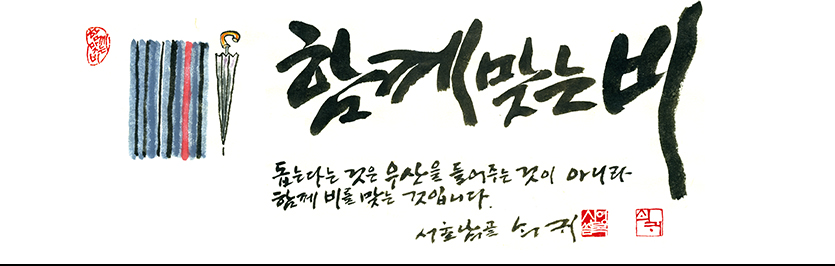 함께 맞는 비
돕는다는 것은 우산을 들어주는 것이 아니라
함께 비를 맞는 것입니다.
쇠귀